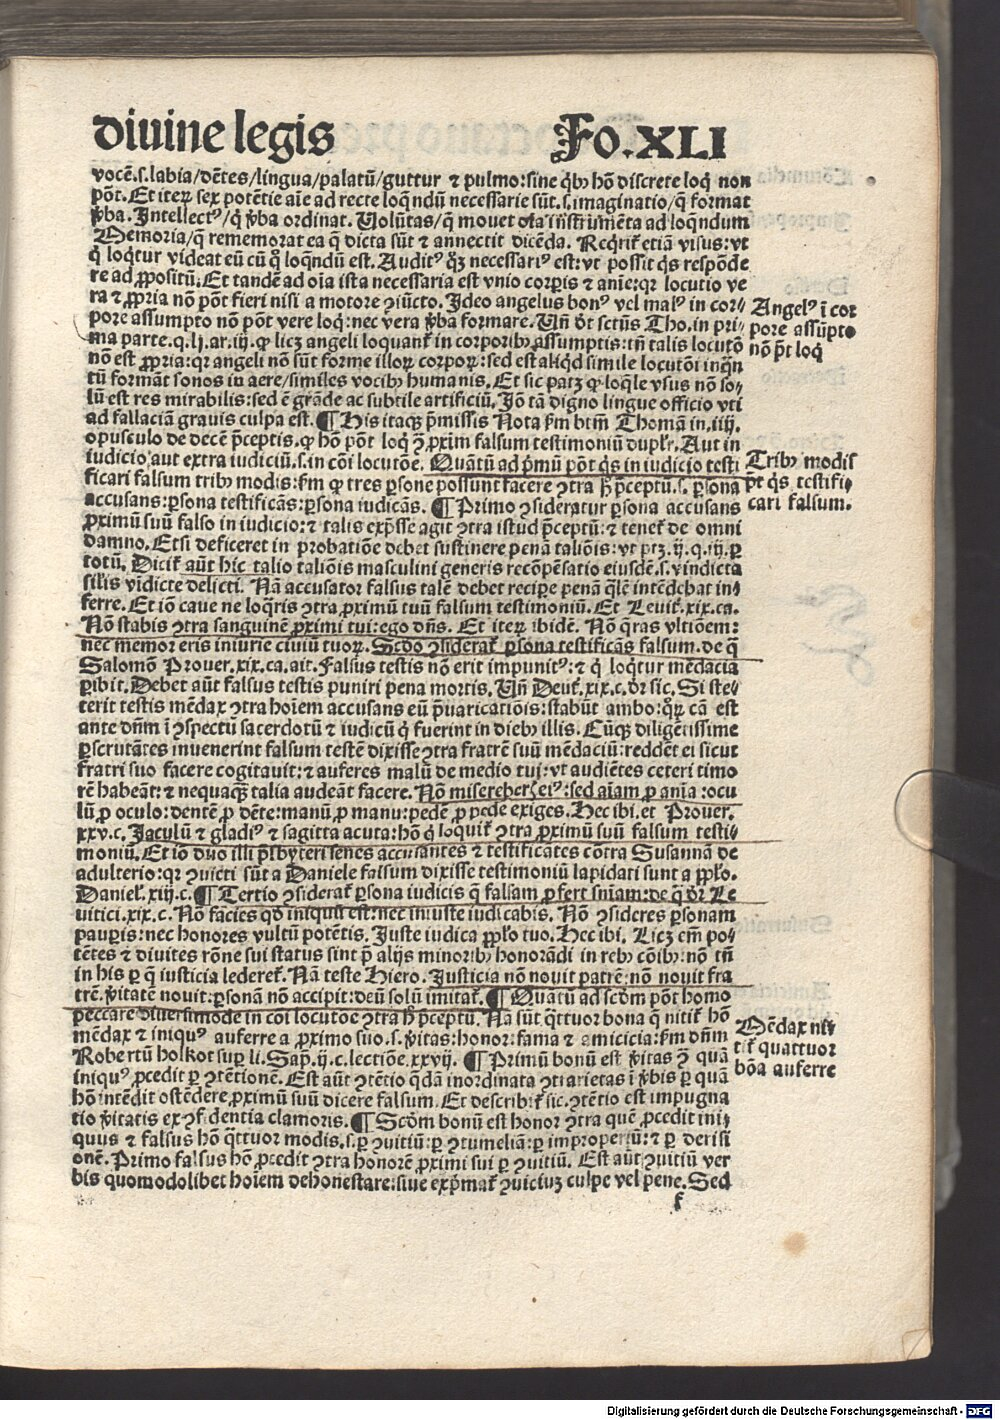 divine legis Fo.XLI
vocē.s.labia/dētes/lingua/palatū/guttur ⁊ pulmo:sine qbꝫ hō discrete loq̄ non
pōt. Et iteꝝ sex potētie aīe ad recte loq̄ndū necessarie sūt.s.imaginatio/q̄ format
v̄ba. Intellectꝰ/q̄ v̄ba ordinat. Volūtas/q̄ mouet oīa instrumēta ad loq̄ndum
Memoria/q̄ rememorat ea q̄ dicta sūt ⁊ annectit dicēda. Reqrit̄ etiā visus:vt
q̄ loqtur videat eū cū q̄ loqndū est. Auditꝰ qꝫ necessariꝰ est:vt possit qs respōde
re ad ꝓpositū. Et tandē ad oīa ista necessaria est vnio corꝑis ⁊ anie:qꝛ locutio ve
ra ⁊ ꝓpria nō pōt fieri nisi a motore ꝯiūcto. Ideo angelus bonꝰ vel malꝰ in cor/
pore assumpto nō pōt vere loq̄:nec vera v̄ba formare. Vn̄ dt̄ sctūs Tho.in pri/
ma parte.q.lj.ar.iij. ꝙ licꝫ angeli loquant̄ in corporibꝫ assumptis:tn̄ talis locutō
nō est ꝓpria:qꝛ angeli nō sūt forme illoꝝ corpoꝝ:sed est aliqd simile locutōi inq̄n
tū formāt sonos in aere/similes vocibꝫ humanis. Et sic patꝫ ꝙ loq̄le vsus nō so/
lū est res mirabilis:sed ē grāde ac subtile artificiū. Jō tā digno lingue officio vti
ad fallaciā grauis culpa est. ¶ His itaqꝫ p̄missis Nota ẜm btm̄ Thomā in.iiij.
opusculo de decē p̄ceptis. ꝙ hō pōt loq̄ ꝯ̄ ꝓxim falsum testimoniū duplr̄. Aut in
iudicio aut extra iudiciū.s.in cōi locutōe. Quātū ad p̄mū pōt qs in iudicio testi
ficari falsum tribꝫ modis:ẜm ꝙ tres ꝑsone possunt facere ꝯtra h̄ p̄ceptū.s. ꝑsona
accusans:ꝑsona testificās:ꝑsona iudicās. ¶ Primo ꝯsideratur ꝑsona accusans
ꝓximū suū falso in iudicio:⁊ talis exp̄sse agit ꝯtra istud p̄ceptū:⁊ tenet̄ de omni
damno. Etsi deficeret in probatiōe debet sustinere penā taliōis:vt ptꝫ.ij.q.iij.ꝑ
totū. Dicit̄ aūt hic talio taliōis masculini generis recōpēsatio eiusdē.s.vindicta
silis vīdicte delicti. Nā accusator falsus talē debet recipe penā q̄lē intēdebat in/
ferre. Et iō caue ne loq̄ris ꝯtra ꝓximū tuū falsum testimoniū. Et Leuit̄.xix.ca.
Nō stabis ꝯtra sanguinē ꝓximi tui:ego dn̄s. Et iteꝝ ibidē. Nō q̄ras vltiōem:
nec memor eris iniurie ciuiū tuoꝝ. Scdo ꝯsiderat̄ ꝑsona testificās falsum.de q̄
Salomō Prouer.xix.ca.ait. Falsus testis nō erit impunitꝰ:⁊ q̄ loqtur mēdacia
ꝑibit. Debet aūt falsus testis puniri pena mortis. Vn̄ Deut̄.xix.c.dr̄ sic. Si ste/
terit testis mēdax ꝯtra hoīem accusans eū p̄uaricatiōis:stabūt ambo:qꝝ cā est
ante dn̄m ī ꝯspectū sacerdotū ⁊ iudicū q̄ fuerint in diebꝫ illis. Cūqꝫ diligētissime
ꝑscrutātes inuenerint falsum testē dixisse ꝯtra fratrē suū mēdaciū:reddēt ei sicut
fratri suo facere cogitauit:⁊ auferes malū de medio tui:vt audiētes ceteri timo
rē habeāt:⁊ nequaqꝫ talia audeāt facere. Nō misereberꝫ eiꝰ:sed aīam ꝓ anīa:ocu
lū ꝓ oculo:dentē ꝓ dēte:manū ꝓ manu:pedē ꝓ pede exiges. Hec ibi.et Prouer.
xxv.c. Jaculū ⁊ gladiꝰ ⁊ sagitta acuta:hō q̄ loquit̄ ꝯtra ꝓximū suū falsum testi/
moniū. Et iō duo illi p̄sbyteri senes accusantes ⁊ testificātes cōtra Susannā de
adulterio:qꝛ ꝯuicti sūt a Daniele falsum dixisse testimoniū lapidati sunt a ppło.
Daniel.xiij.c. ¶ Tertio ꝯsiderat̄ ꝑsona iudicis q̄ falsam ꝓfert sniam:de q̄ dr̄ Le
uitici.xix.c. Nō facies qd iniquū est:nec iniuste iudicabis. Nō ꝯsideres ꝑsonam
pauꝑis:nec honores vultū potētis. Juste iudica ppło tuo. Hec ibi. Licꝫ em̄ po/
tētes ⁊ diuites rōne sui status sint p̄ alijs minoribꝫ honorādi in rebꝫ cōibꝫ:nō tn̄
in his ꝑ q̄ iusticia lederet̄. Nā teste Hiero. Justicia nō nouit patrē:nō nouit fra
trē.v̄itatē nouit:ꝑsonā nō accipit:deū solū imitat̄. ¶ Quātū ad scdm̄ pōt homo
peccare diuersimode in cōi locutōe ꝯtra h̄ p̄ceptū. Nā sūt q̄ttuor bona q̄ nitit̄ hō
mēdax ⁊ iniquꝰ auferre a ꝓximo suo.s.v̄itas:honor:fama ⁊ amicicia:ẜm dn̄m
Robertū holkot suꝑ li.Sap̄.ij.c.lectiōe.xxvij. ¶ Primū bonū est v̄itas ꝯ̄ quā
iniquꝰ ꝓcedit ꝑ ꝯtētionē. Est aūt ꝯtētio q̄dā inordinata ꝯtrarietas ī v̄bis ꝑ quā
hō intēdit ostēdere ꝓximū suū dicere falsum. Et describit̄ sic.ꝯtētio est impugna
tio v̄itatis ex ꝯfidentia clamoris. ¶ Scdm̄ bonū est honor ꝯtra quē ꝓcedit ini/
quus ⁊ falsus hō q̄ttuor modis.s.ꝑ ꝯuitiū:ꝑ ꝯtumeliā:ꝑ improperiū:⁊ ꝑ derisi
onē. Primo falsus hō ꝓcedit ꝯtra honorē ꝓximi sui ꝑ ꝯuitiū. Est aūt ꝯuitiū ver
bis quomodolibet hoīem dehonestare:siue exp̄mat̄ ꝯuiciuꝫ culpe vel pene. Sed
f
Angelꝰ ī cor
pore assūpto
nō pt̄ loq̄
Tribꝫ modis
pt̄ qs testifi/
cari falsum.
Mēdax ni/
tit̄ quattuor
bōa auferre
Digitalisierung gefördert durch die Deutsche Forschungsgemeinschaft - DFG